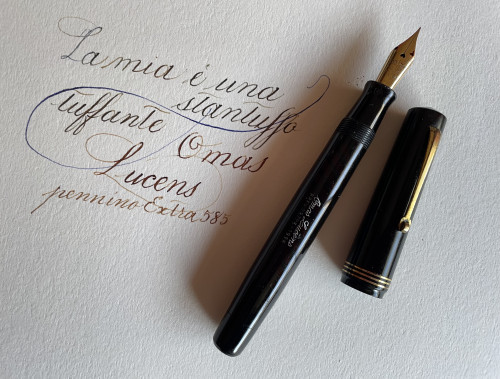 La mia è una
stantuffo
tuffante Omas
Lucens
pennino Extra 585
Omas Lucens